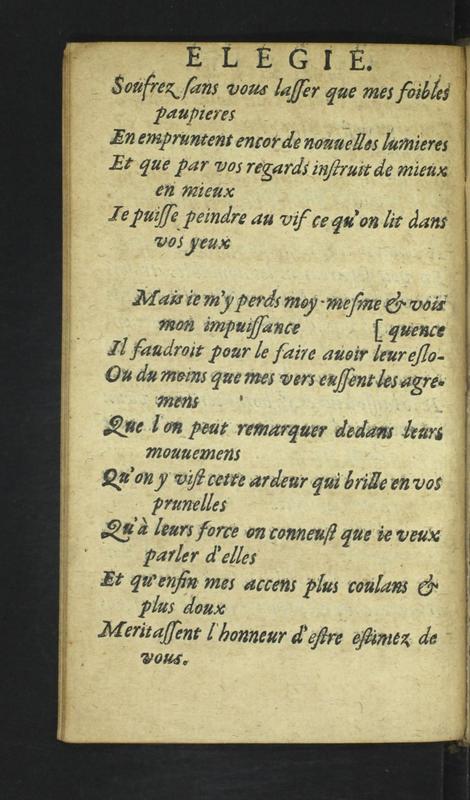 ELEGIE.
Soufrez sans vous lasser que mes foibles
paupieres
En empruntent encor de nouuelles lumieres
Et que par vos regards instruit de mieux
en mieux
Ie puisse peindre au vif ce qu'on lit dans
vos yeux
Mais ie m'y perds moy-mesme & vois
mon impuissance [quence
Il faudroit pour le faire auoir leur eslo-
Ou du moins que mes vers eussent les agre-
mens
Que l'on peut remarquer dedans leurs
mouuemens
Qu'on y vist cette ardeur qui brille en vos
prunelles
Qu'à leurs force on conneust que ie veux
parler d'elles
Et qu'enfin mes accens plus coulans &
plus doux
Meritassent l'honneur d'estre estimez de
vous.